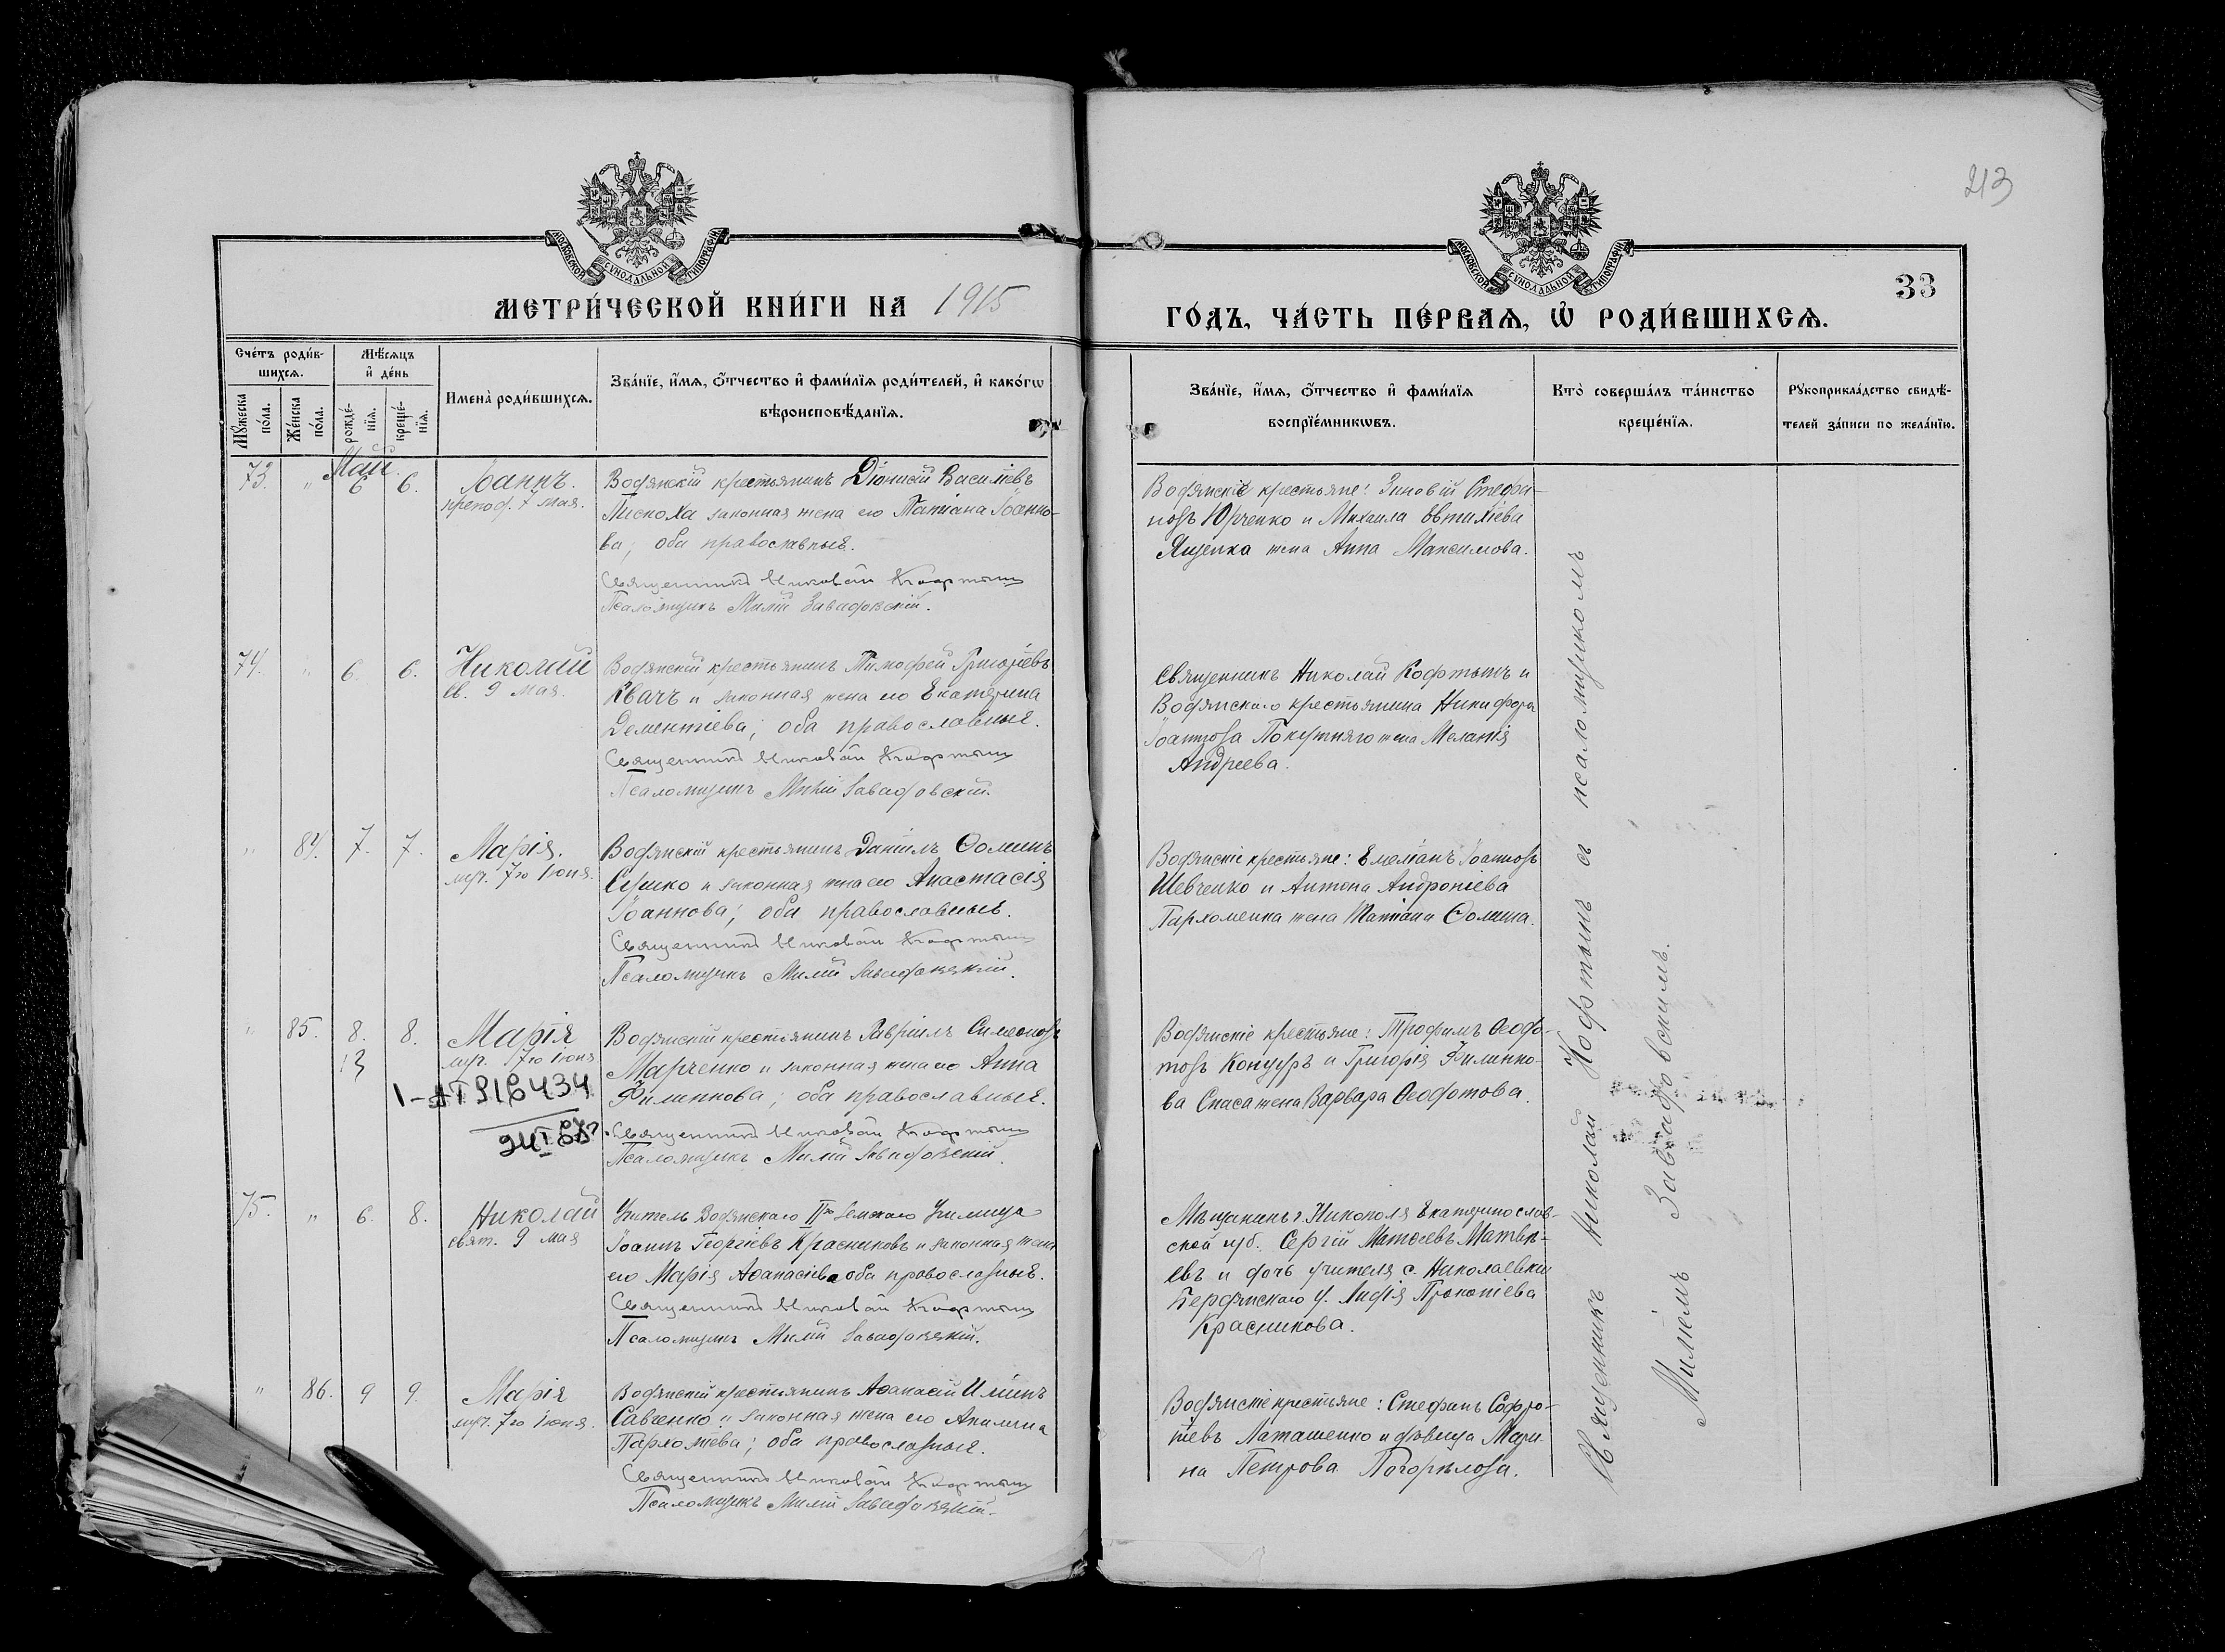 213
МОСКОВСКОЙ СУНОДАЛЬНОЙ ТИПОГРАФИИ
МОСКОВСКОЙ СУНОДАЛЬНОЙ ТИПОГРАФИИ
33
МЕТРИ́ЧЕСКОЙ КНИ́ГИ НА 1915
ГО́ДЪ, ЧА́СТЬ ПЕ́РВАѦ, Ѡ҆ РОДИ́ВШИХСѦ.
Сче́тъ роди́в-
шихсѧ.
Мѣ́сѧцъ
и҆ де́нь
Мꙋ́жеска
по́ла.
Же́нска
по́ла.
рожде́-
нїѧ.
креще́-
нїѧ.
Имена̀ роди́вшихсѧ.
Зва́нїе, и҆́мѧ, ѻ҆́тчество и҆ фами́лїѧ роди́телей, и҆ како́гѡ
вѣроисповѣ́данїѧ.
Зва́нїе, и҆́мѧ, ѻ҆́тчество и҆ фами́лїѧ
воспрїе́мникѡвъ.
Кто̀ соверша́лъ та́инство
креще́нїѧ.
Рꙋкоприкла́дство свидѣ́-
телей за́писи по жела́нїю.
Май.
73. " 6 6. Іоаннъ.
препод. 7 мая.
Водянскій крестьянинъ Діонисій Василіевъ
Пискоха законная жена его Татіана Іоанно-
ва; оба православные.
Священникъ Николай Кофтынъ
Псаломщикъ Милій Завадовскій.
Водянскіе крестьяне: Зиновій Стефа-
новъ Юрченко и Михаила Евтихіева
Ященка жена Анна Максимова.
74. " 6. 6. Николай
св. 9 мая.
Водянскій крестьянинъ Тимофей Григоріевъ
Квачъ и законная жена его Екатерина
Дементіева; оба православные.
Священникъ Николай Кофтынъ
Псаломщикъ Милій Завадовскій.
Священникъ Николай Кофтынъ и
Водянскаго крестьянина Никифора
Іоаннова Покутняго жена Меланія
Андреева.
" 84. 7. 7. Марія.
муч. 7го Іюня.
Водянскій крестьянинъ Даніилъ Ѳоминъ
Сірико и законная жена его Анастасія
Іоаннова; оба православные.
Священникъ Николай Кофтынъ
Псаломщикъ Милій Завадовскій.
Водянскіе крестьяне: Емеліанъ Іоанновъ
Шевченко и Антона Андроніева
Пархоменка жена Татіана Ѳомина.
" 85. 8. 8. Марія
муч. 7го Іюня
13
Водянскій крестьянинъ Гавріилъ Симеоновъ
Марченко и законная жена его Анна
Филиппова; оба православные.
Священникъ Николай Кофтынъ
Псаломщикъ Милій Завадовскій.
Водянскіе крестьяне: Трофимъ Ѳеодо-
товъ Концуръ и Григорія Филиппо-
ва Спаса жена Варвара Ѳеодотова.
75. " 6. 8. Николай
свят. 9 мая
Учитель Водянскаго IIго Земскаго Училища
Іоаннъ Георгіевъ Красниковъ и законная жена
его Марія Аѳанасіева оба православные.
Священникъ Николай Кофтынъ
Псаломщикъ Милій Завадовскій.
Мѣщанинъ г. Никополя Екатеринослав-
ской губ. Сергій Матѳеевъ Матвѣ-
евъ и дочь учителя с. Николаевки
Бердянскаго у. Лидія Прокопіева
Красникова.
" 86. 9 9. Марія
муч. 7го Іюня.
Водянскій крестьянинъ Аѳанасій Иліинъ
Савченко и законная жена его Акилина
Пархоміева; оба православные.
Священникъ Николай Кофтынъ
Псаломщикъ Милій Завадовскій.
Водянскіе крестьяне: Стефанъ Софро-
ніевъ Латашенко и дѣвица Мари-
на Петрова Погорѣлова.
Священникъ Николай Кофтынъ съ псаломщикомъ
Миліемъ Завадовскимъ.